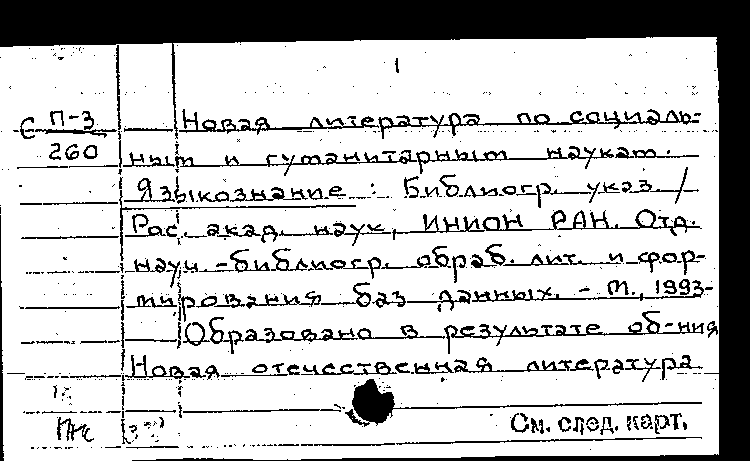 1
С П-3 Новая литература по социаль-
260 ным и гуманитарным наукам.
Языкознание : Библиогр. указ. /
Рос. акад. наук, ИНИОН РАН. Отд.
науч.-библиогр. обраб. лит. и фор-
мирования баз данных. - М., 1993-
Образовано в результате об-ния
Новая отечественная литература
См. след. карт.